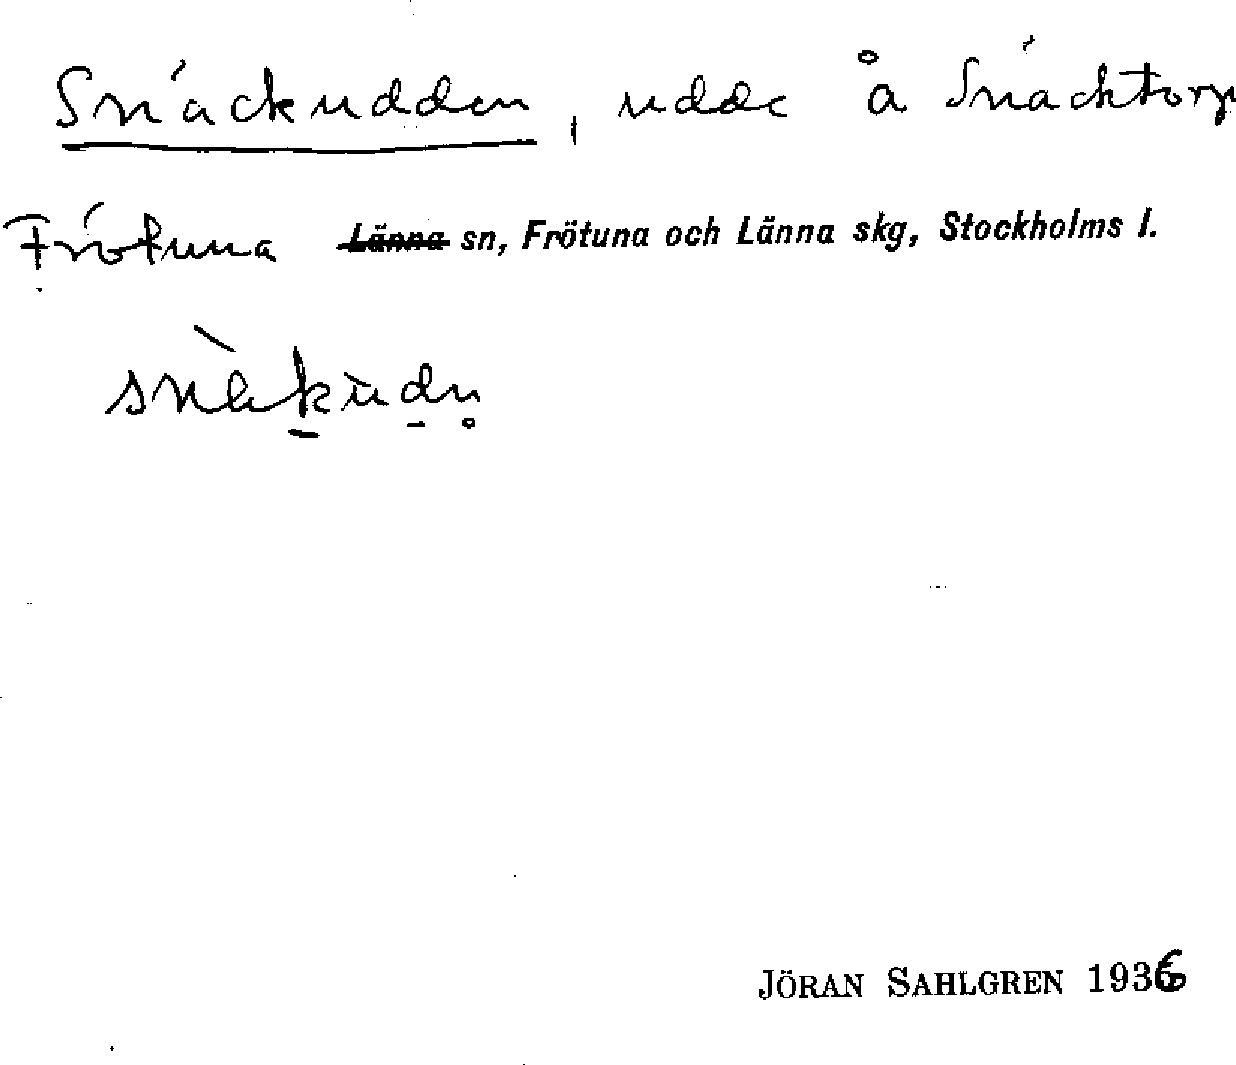 Snäckudden, udde å Snäcktorp
Frötuna Länna sn, Frötuna och Länna skg, Stockholms l.
snèkùdn̥
JÖRAN SAHLGREN 1936